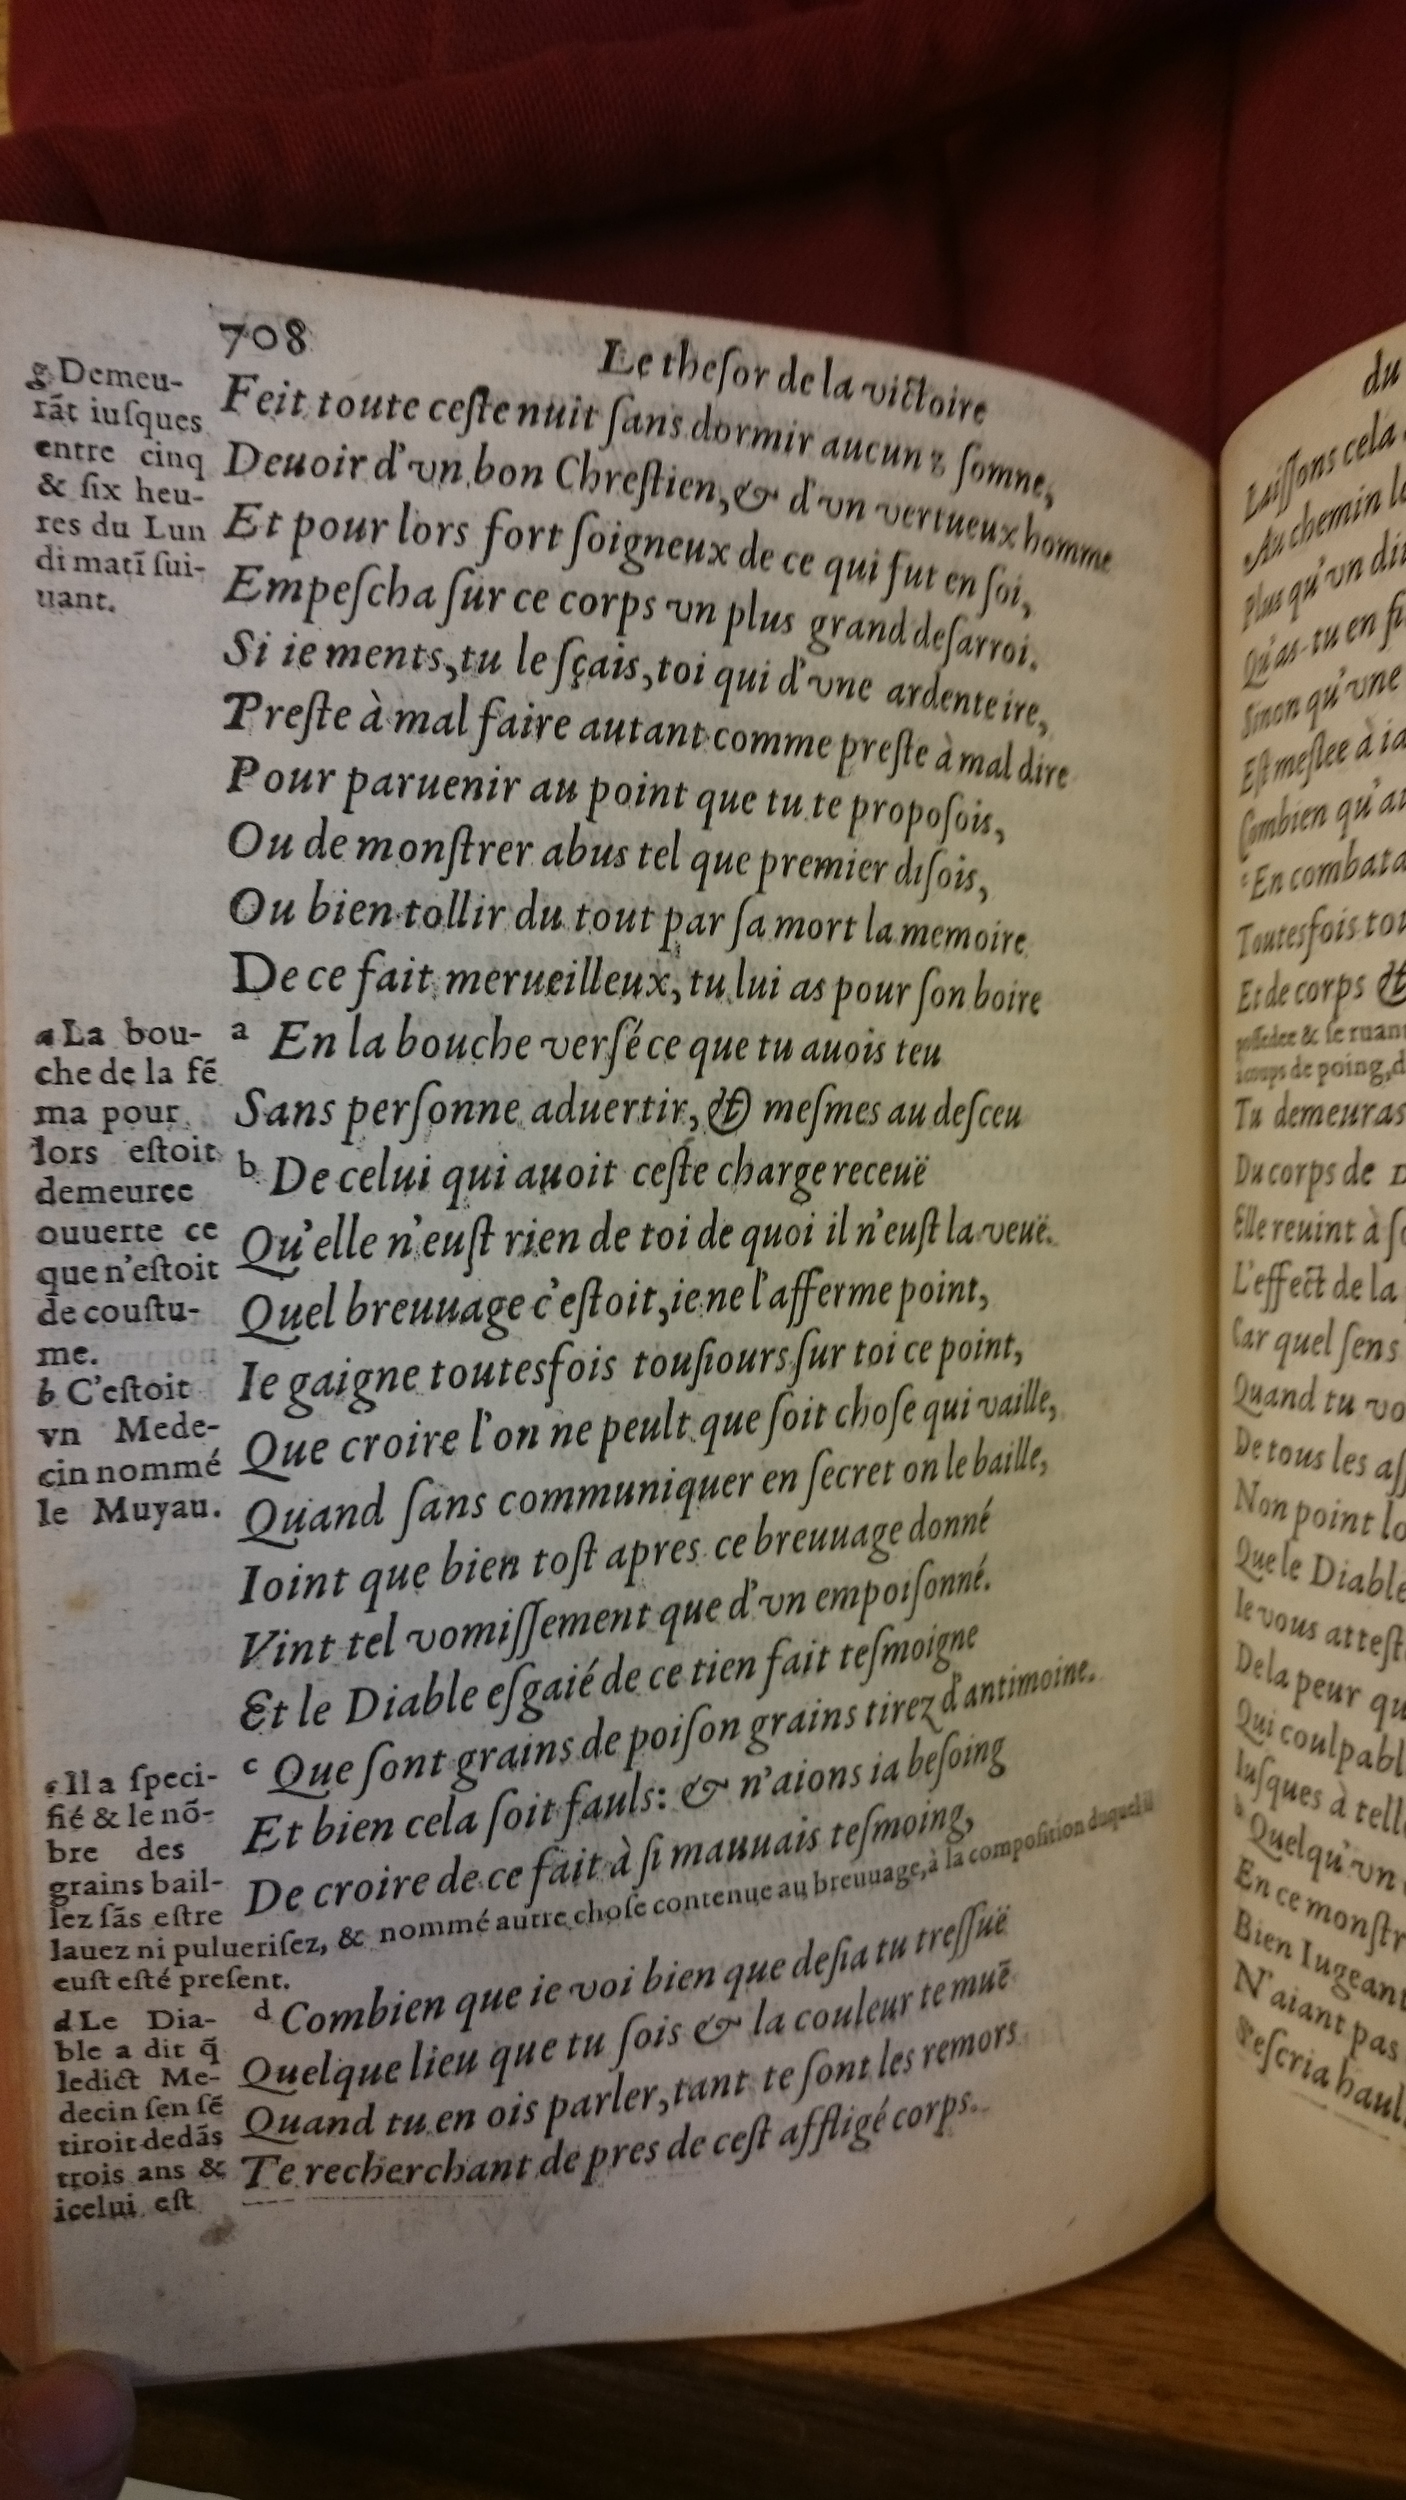 708
Le theſor de la victoire
g Demeu-
rãt iuſques
entre cinq
& ſix heu-
res du Lun
di matĩ ſui-
uant.
Feit toute ceſte nuit ſans dormir aucun ſomne,
Deuoir d'vn bon Chreſtien, & d'vn vertueux homme
Et pour lors fort ſoigneux de ce qui fut en ſoi,
Empeſcha ſur ce corps vn plus grand deſarroi.
Si ie ments, tu le ſçais, toi qui d'vne ardente ire,
Preſte à mal faire autant comme preſte à mal dire
Pour paruenir au point que tu te propoſois,
Ou de monſtrer abus tel que premier diſois,
Ou bien tollir du tout par ſa mort la memoire
De ce fait merueilleux, tu lui as pour ſon boire
a En la bouche verſé ce que tu auois teu
Sans perſonne aduertir, & meſmes au deſceu
b De celui qui auoit ceſte charge receuë
Qu'elle n'euſt rien de toi de quoi il n'euſt la veuë.
Quel breuuage c'eſtoit, ie ne l'afferme point,
Ie gaigne toutesfois touſiours ſur toi ce point,
Que croire l'on ne peult que ſoit choſe qui vaille,
Quand ſans communiquer en ſecret on le baille,
Ioint que bien toſt apres ce breuuage donné
Vint tel vomiſſement que d'vn empoiſonné.
Et le Diable eſgaié de ce tien fait teſmoigne
c Que ſont grains de poiſon grains tirez d'antimoine.
Et bien cela ſoit fauls: & n'aions ia beſoing
De croire de ce fait à ſi mauuais teſmoing,
a La bou-
che de la fẽ
ma pour
lors eſtoit
demeuree
ouuerte ce
que n'eſtoit
de couſtu-
me.
b C'eſtoit
vn Mede-
cin nommé
le Muyau.
c Il a ſpeci-
fié & le nõ-
bre des
grains bail-
lez ſãs eſtre
lauez ni pulueriſez, & nommé autre choſe contenue au breuuage, à la compoſition duquel il
euſt eſté preſent.
d Combien que ie voi bien que deſia tu treſſuë
Quelque lieu que tu ſois & la couleur te muë
Quand tu en ois parler, tant te ſont les remors
Te recherchant de pres de ceſt affligé corps.
d Le Dia-
ble a dit q̃
ledict Me-
decin ſen ſẽ
tiroit dedãs
trois ans &
icelui eſt
du
Laiſſons cela
Au chemin
Plus qu'vn
Qu'as-tu en
Sinon qu'vne
Eſt meſlee à
Combien qu'
c En combata
Toutesfois
Et de corps &
poſſedee & ſe ruant
à coups de poing,
Tu demeuras
Du corps de
Elle reuint à
L'effect de la
Car quel ſens
Quand tu
De tous les
Non point
Que le Diable
Ie vous
De la peur
Qui
Iuſques à
Quelqu'vn
En ce
Bien Iugeant
N'aiant pas